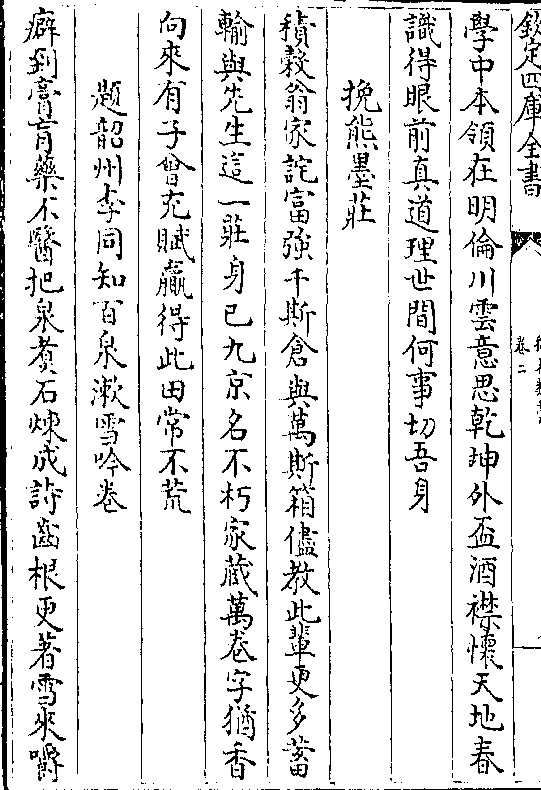 欽定四庫全書
卷二
學中本領在明倫川雲意思乾坤外盃酒襟懷天地春
識得眼前真道理世間何事切吾身
挽熊墨莊
積榖翁家詫富強千斯倉與萬斯箱儘教此輩更多蓄
輸與先生這一莊身已九京名不朽家藏萬卷字猶香
向來有子曾充賦贏得此田常不荒
題韶州李同知百泉漱雪吟卷
癖到膏肓藥不醫把泉煑石煉成詩齒根更著雪來嚼